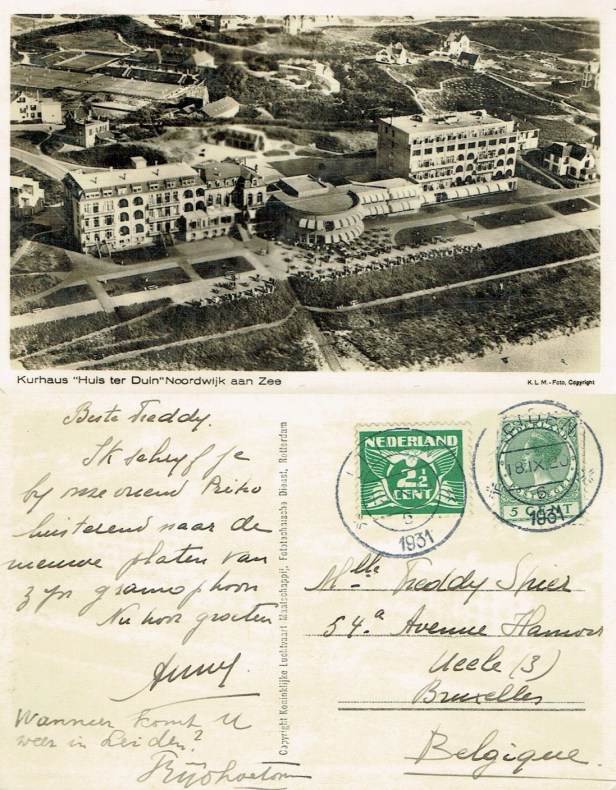 Kurhaus "Huis ter Duin" Noordwijk aan Zee
K.L.M.-Foto, Copyright
Beste Freddy.
Ik schrijf je
bij onze vriend
luisterend naar de
nieuwe platen van
zijn gramophoon
Nu hoor groeten
Wanneer komt U
weer in Leiden?
Copyright Koninklijke Luchtvaart Maatschappij, Fototechnische Dienst, Rotterdam
NEDERLAND
2½
CENT
1931
LEIDEN
18.IX.20
5 CENT
1931
Mlle Freddy Spier
54.a Avenue Hamoir
Uccle (3)
Bruxelles
Belgique.